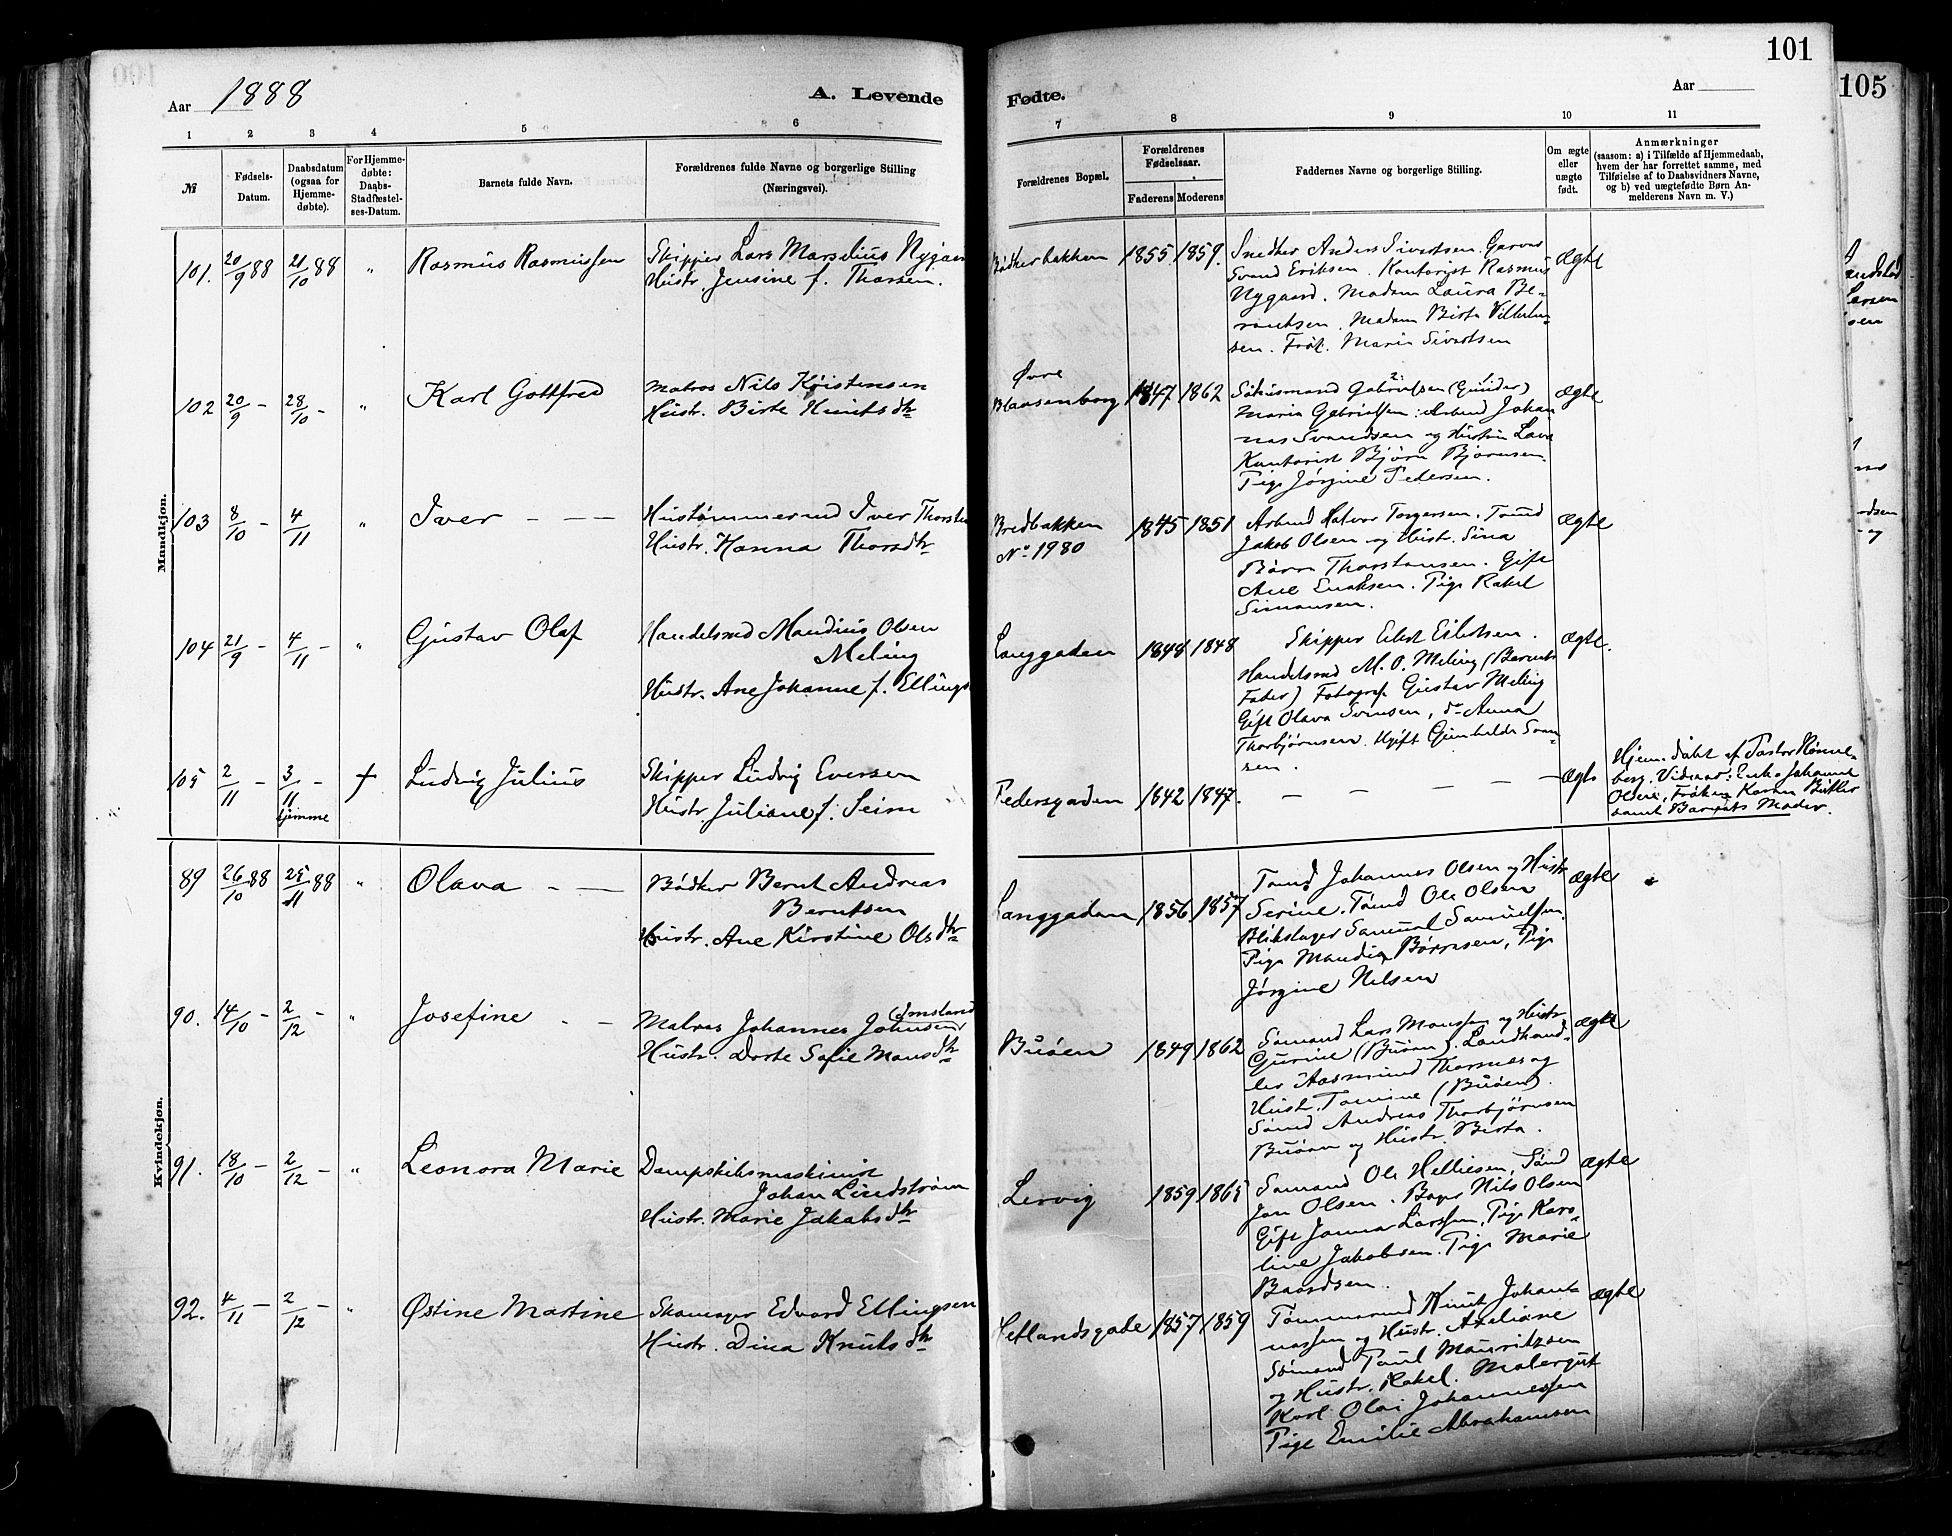 101
105
Aar 1888
A. Levende
Fødte.
Aar
1 2 3 4 5 6 7 8 9 10 11
№
Fødsels-Datum.
Daabsdatum (ogsaa for Hjemme-døbte).
For Hjemme-døbte: Daabs-Stadfæstelses-Datum.
Barnets fulde Navn.
Forældrenes fulde Navne og borgerlige Stilling
(Næringsvei).
Forældrenes Bopæl.
Forældrenes Fødselsaar.
Faderens Moderens
Faddernes Navne og borgerlige Stilling.
Om ægte eller uægte født.
Anmærkninger
(saasom: a) i Tilfælde af Hjemmedaab,
hvem der har forrettet samme, med
Tilføielse af to Daabsvidners Navne,
og b) ved uægtefødte Børn An-
melderens Navn m. V.)
Mandkjøn.
101. 20/9 88 21/10 88 " Rasmus Rasmussen
Skipper Lars Marselius Nygaard
Hustr. Jensine f. Thorsen.
Bødkerbakken 1855. 1859.
Snedker Anders Sivertsen. Garver
Svend Eriksen. Kontorist Rasmus
Nygaard. Madam Laura Be-
rentsen. Madam Birta Vilhelm-
sen. Frøk. Maria Sivertsen
Ægte
102 20/9 - 28/10 - " Karl Gottfred
Matros Nils Kristensen
Hustr. Birte Knutsdtr
Øvre
Blaasenborg 1847 1862
Gabrielsen
Maria Gabrielsen. Arbmd Johan-
nes Svendsen og Hustru Lava
Kontorist Bjørn Bjørnsen.
Pige Jørgine Pedersen.
Ægte
103 8/10 - 4/11 " Iver - —
Hustømmermd Iver Thorsten
Hustr. Hanna Thorsdtr
Bredbakken
No 1980
1845 1851
Arbmd Halvor Torgersen. Tømd
Jakob Olsen og Hustr. Sina
Børre Thorstensen. Gift
Ane Enoksen. Pige Rakel
Simonsen.
Ægte
104 21/9 - 4/11 - " Gustav Olaf
Handelsmd Maudius Olsen
Meling
Hustr. Ane Johanne f. Ellings
Langgaden 1848 1848
Skipper Eilert Eilertsen.
Handelsmd M. O. Meling (Barnets
Fader) Fotograf Gustav Meling
Gift Olava Svensen, do Anna
Thorbjørnsen. Ugift Gunhilde Sven-
sen.
Ægte.
105 2/11 - 3/11 - hjemme † Ludvig Julius
Skipper Ludvig Eversen
Hustr. Juliane f. Seim
Pedersgaden 1842 1847.
— — — — —
Ægte
Hjem. døbt af Pastor Rønne-
berg. Vidner: Enke Johanne
Olsen, Frøken Karen Bøtker
samt Barnets Moder.
Kvindekjøn.
89 26/10 88 25/11 88 " Olava - —
Bødker Bernt Andreas
Berntsen
Hustr. Ane Kirstine Olsdtr
Langgaden 1856 1857
Tømd Johannes Olsen og Hustr
Serine. Tømd Ole Olsen
Blikslager Samuel Samuelsen.
Pige Maudia Børresen, Pige
Jørgine Nilsen
Ægte
90. 14/10 - 2/12 - " Josefine - -
Matros Johannes Johnsen (Omsland
Hustr. Dorte Sofie Monsdtr
Buøen 1849 1862
Sømand Lars Monssen og Hustr
Gurine (Buøen). Landhand-
ler Aasmund Thornes og
Hustr. Tomine (Buøen).
Sømd Andreas Thorbjørnsen
Buøen og Hustr. Birta.
Ægte
91. 18/10 - 2/12 - " Leonora Marie
Dampskibsmaskinist
Johan Lindstrøm
Hustr. Marie Jakobsdtr
Lervig 1859 1865
Sømand Ole Helliesen, Sømd
Jon Olsen. Nils Olsen
Gift Janna Larssen, Pige Karo-
line Jakobsen. Pige Marie
Baardsen.
Ægte
92. 4/11 - 2/12 - " Østine Martine
Skomager Edvard Ellingsen
Hustr. Dina Knutsdtr
Hetlandsgade 1857 1859
Tømmermd Knut Johan-
nessen og Hustr. Axeliane
Sømand Poul Mauritzsen
og Hustr. Rakel. Malergut
Karl Olai Johannessen
Pige Emilie Abrahamsen
Ægte